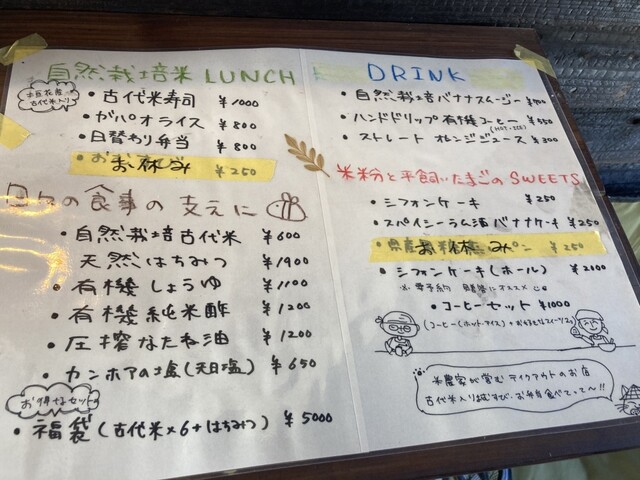 自然栽培米 LUNCH
古代米入り
・古代米寿司 ¥1000
・ガパオライス ¥800
・日替わり弁当 ¥800
お休み ¥250
日々の食事の支えに
・自然栽培古代米 ¥600
・天然はちみつ ¥1900
・有機しょうゆ ¥1100
・有機純米酢 ¥1200
・圧搾なたね油 ¥1200
・カンホアの塩(天日塩) ¥650
お得なセット
・福袋(古代米×6+はちみつ) ¥5000
DRINK
・自然栽培バナナスムージー
・ハンドドリップ有機コーヒー ¥550
(HOT・ICE)
・ストレートオレンジジュース ¥300
米粉と平飼いたまごのSWEETS
・シフォンケーキ ¥250
・スパイシーラム酒バナナケーキ ¥250
お休み ¥250
・シフォンケーキ(ホール) ¥2000
※要予約
・コーヒーセット ¥1000
(コーヒー(ホット・アイス)+お好きなスイーツ
米農家が営むテイクアウトのお店
古代米入り お弁当食べてって〜!!